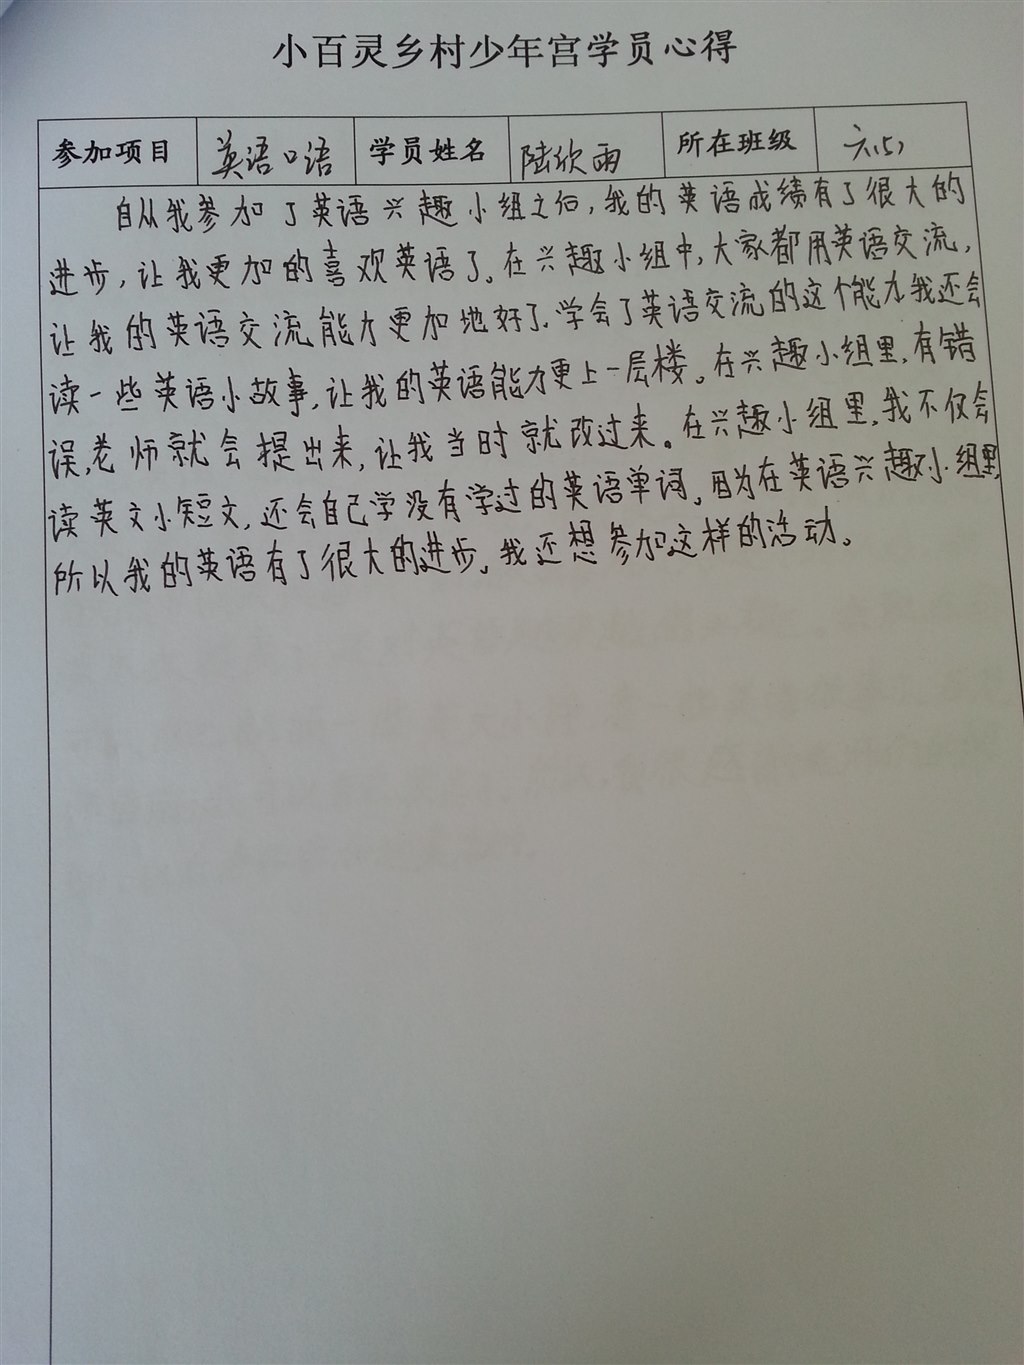 小百灵乡村少年宫学员心得
参加项目 英语口语 学员姓名 陆欣雨 所在班级 六(5)
自从我参加了英语兴趣小组之后,我的英语成绩有了很大的
进步,让我更加的喜欢英语了。在兴趣小组中,大家都用英语交流,
让我的英语交流能力更加地好了。学会了英语交流的这个能力,我还会
读一些英语小故事,让我的英语能力更上一层楼。在兴趣小组里,有错
误,老师就会提出来,让我当时就改过来。在兴趣小组里,我不仅会
读英文小短文,还会自己学没有学过的英语单词。因为在英语兴趣小组里,
所以我的英语有了很大的进步。我还想参加这样的活动。